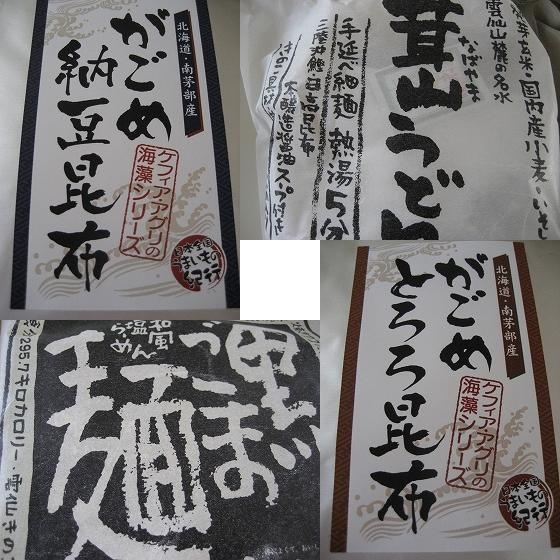 北海道・南茅部産
がごめ
納豆昆布
ケフィアアグリの
海藻シリーズ
日本全国
うまいもの
紀行
雲仙山麓の名水
なばやま
茸山うどん
手延べ細麺 熱湯5分
三陸丸鰹・日高昆布
本醸造醤油スープ付き
和風
塩
らーめん
黒ごま
麺
295.7キロカロリー・雲仙きのこ
北海道・南茅部産
がごめ
とろろ昆布
ケフィアアグリの
海藻シリーズ
日本全国
うまいもの
紀行